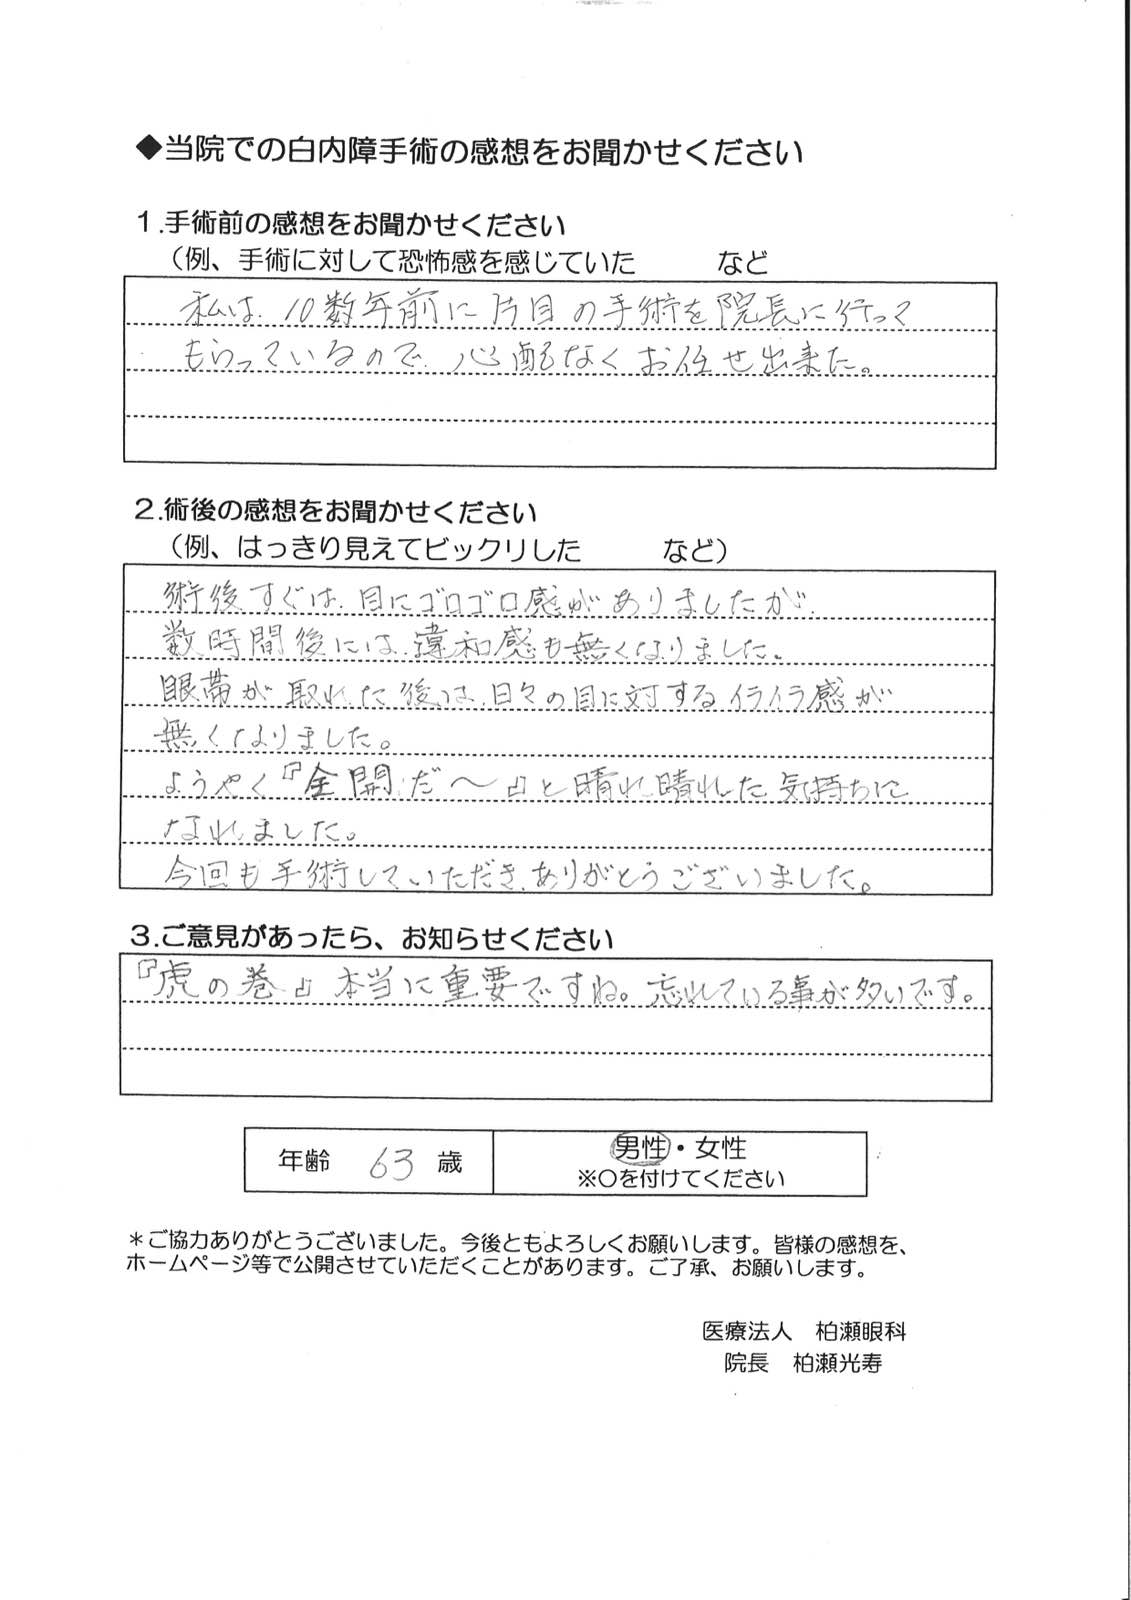 ◆当院での白内障手術の感想をお聞かせください
1.手術前の感想をお聞かせください
（例、手術に対して恐怖感を感じていた　　　など
私は、10数年前に片目の手術を院長に行って
もらっているので、心配なくお任せ出来た。
2.術後の感想をお聞かせください
（例、はっきり見えてビックリした　　　など）
術後すぐは、目にゴロゴロ感がありましたが、
数時間後には、違和感も無くなりました。
眼帯が取れた後は、日々の目に対するイライラ感が
無くなりました。
ようやく『全開だ〜』と晴れ晴れした気持ちに
なれました。
今回も手術していただき、ありがとうございました。
3.ご意見があったら、お知らせください
『虎の巻』本当に重要ですね。忘れている事が多いです。
年齢　63　歳　男性・女性
※〇を付けてください
＊ご協力ありがとうございました。今後ともよろしくお願いします。皆様の感想を、
ホームページ等で公開させていただくことがあります。ご了承、お願いします。
医療法人　柏瀬眼科
院長　柏瀬光寿